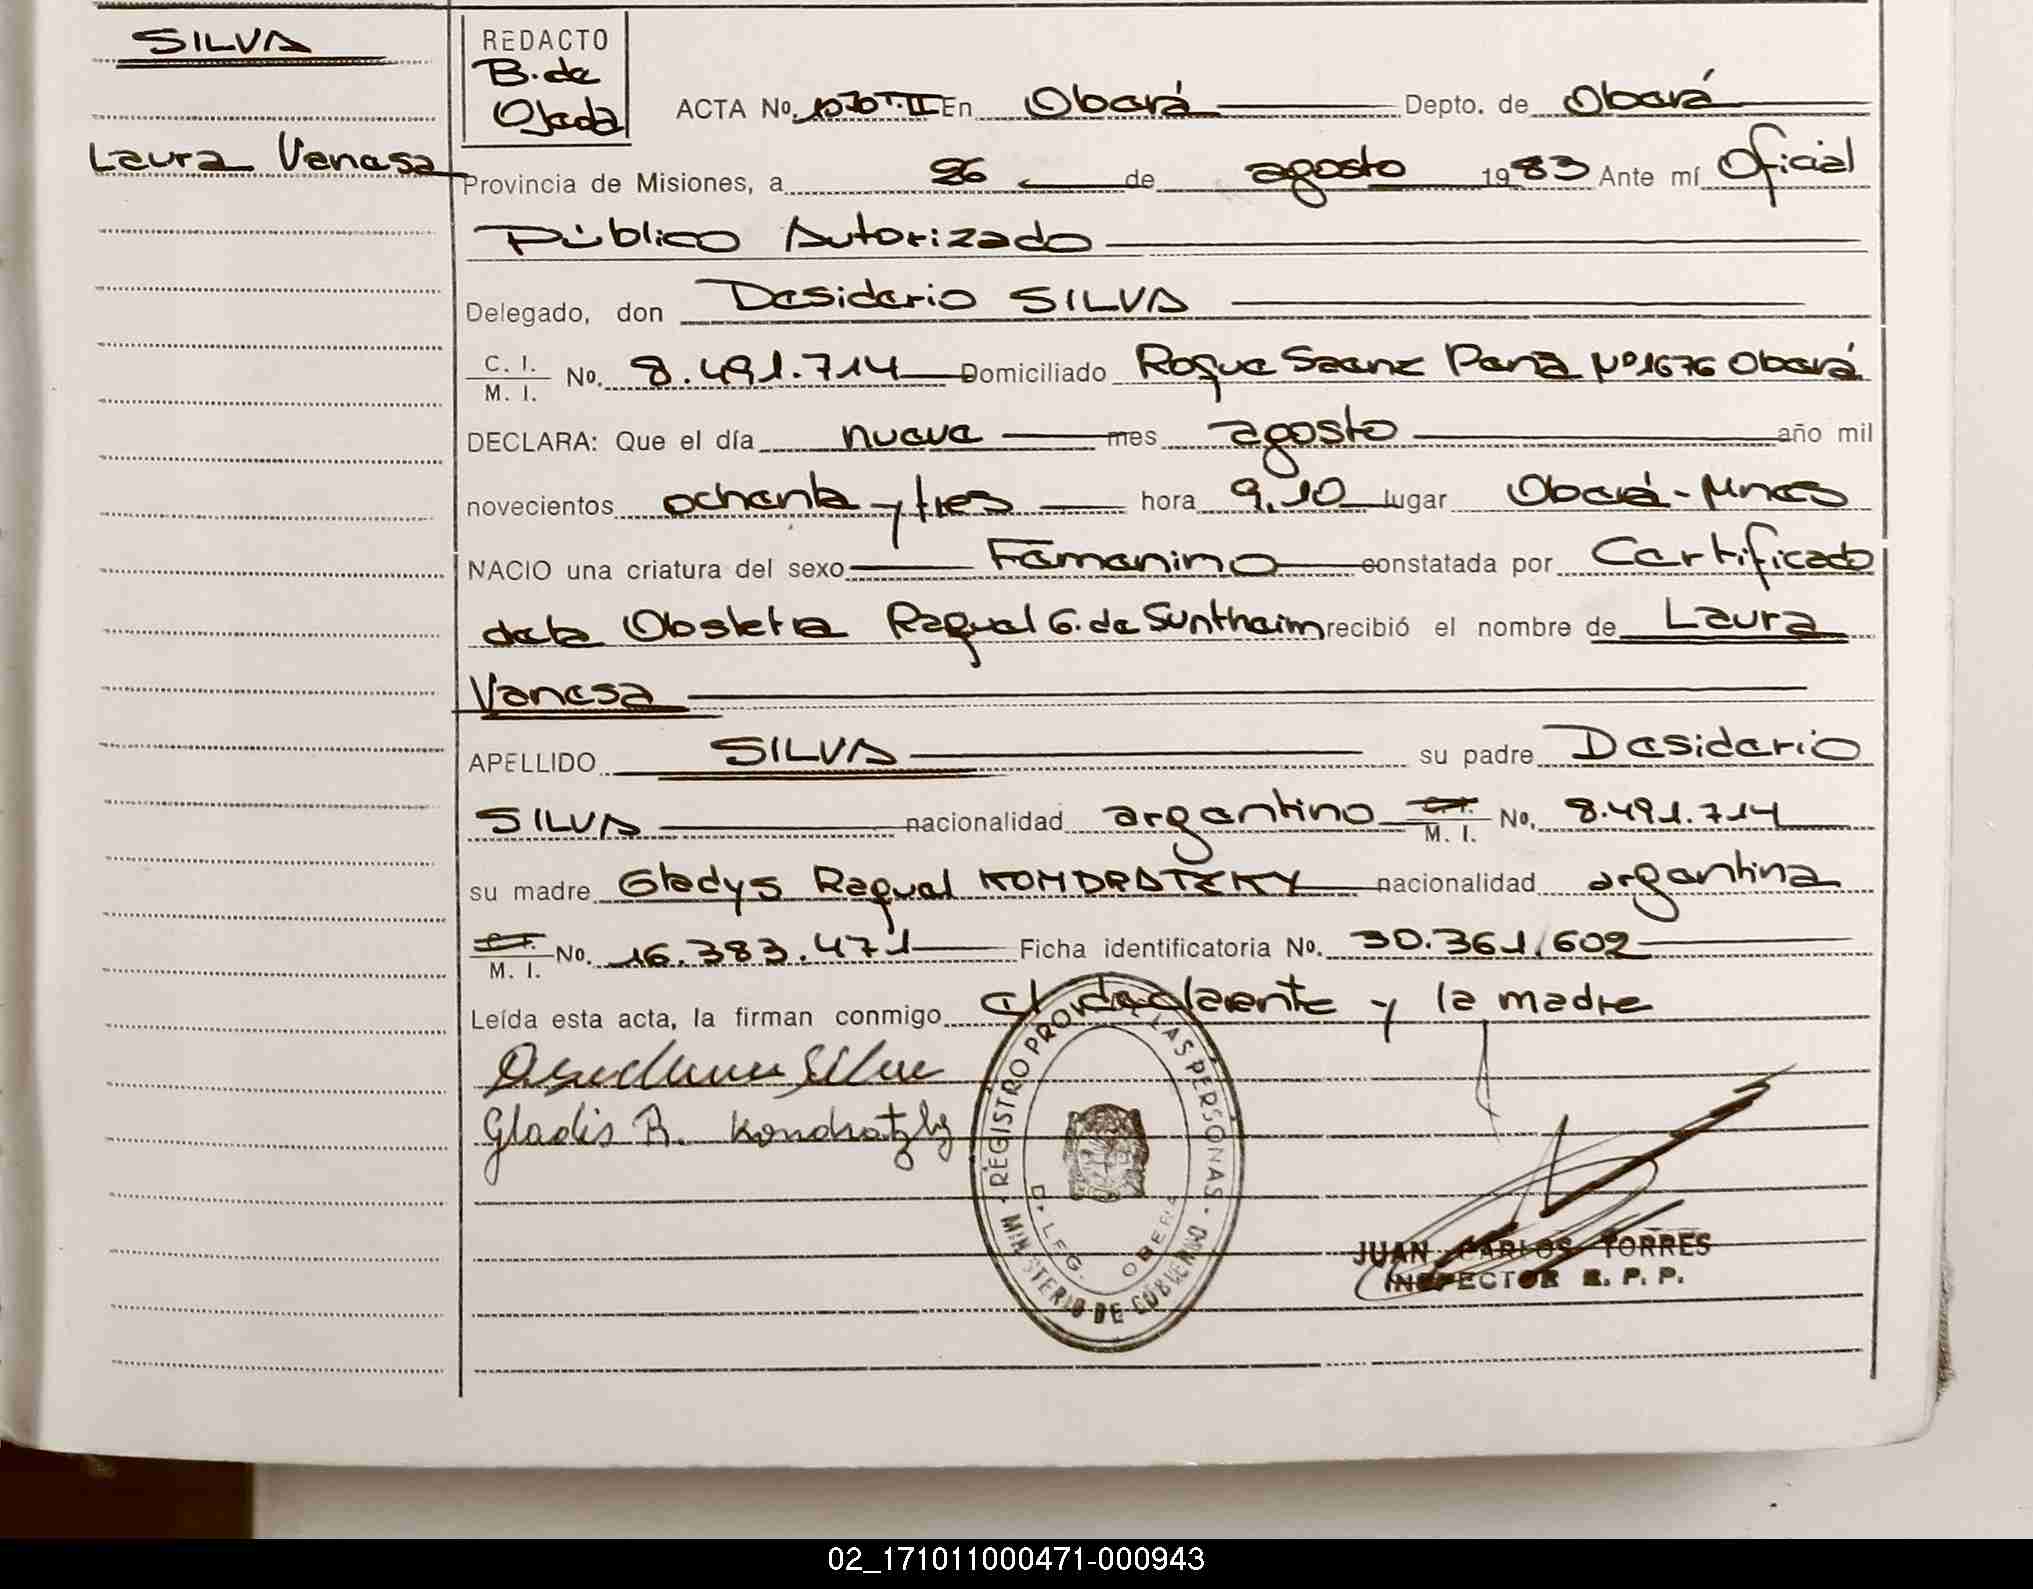 SILVA
Laura Vanesa
REDACTO
B. de
Ojeda
ACTA No. 1070 T. II En Oberá Depto. de Oberá
Provincia de Misiones, a 26 de agosto 1983 Ante mí Oficial
Público Autorizado
Delegado, don Desiderio SILVA
C. I.
M. I. No. 8.491.714 Domiciliado Roque Saenz Pena Nº1676 Oberá
DECLARA: Que el día nueve mes agosto año mil
novecientos ochenta y tres hora 9,10 lugar Oberá-Mnes
NACIO una criatura del sexo Femenino constatada por Certificado
de la Obstetra Raquel G. de Suntheim recibió el nombre de Laura
Vanesa
APELLIDO SILVA su padre Desiderio
SILVA nacionalidad argentino C. I. M. I. No. 8.491.714
su madre Gladys Raquel KONDRATZKY nacionalidad argentina
C. I. M. I. No. 16.383.471 Ficha identificatoria No. 30.361,602
Leída esta acta, la firman conmigo el declarente y la madre
Desiderio Silva
Gladis R. Kondratzky
REGISTRO PROV. DE LAS PERSONAS
MINISTERIO DE GOBIERNO
DELEG. OBERA
JUAN CARLOS TORRES
INSPECTOR R. P. P.
02_171011000471-000943